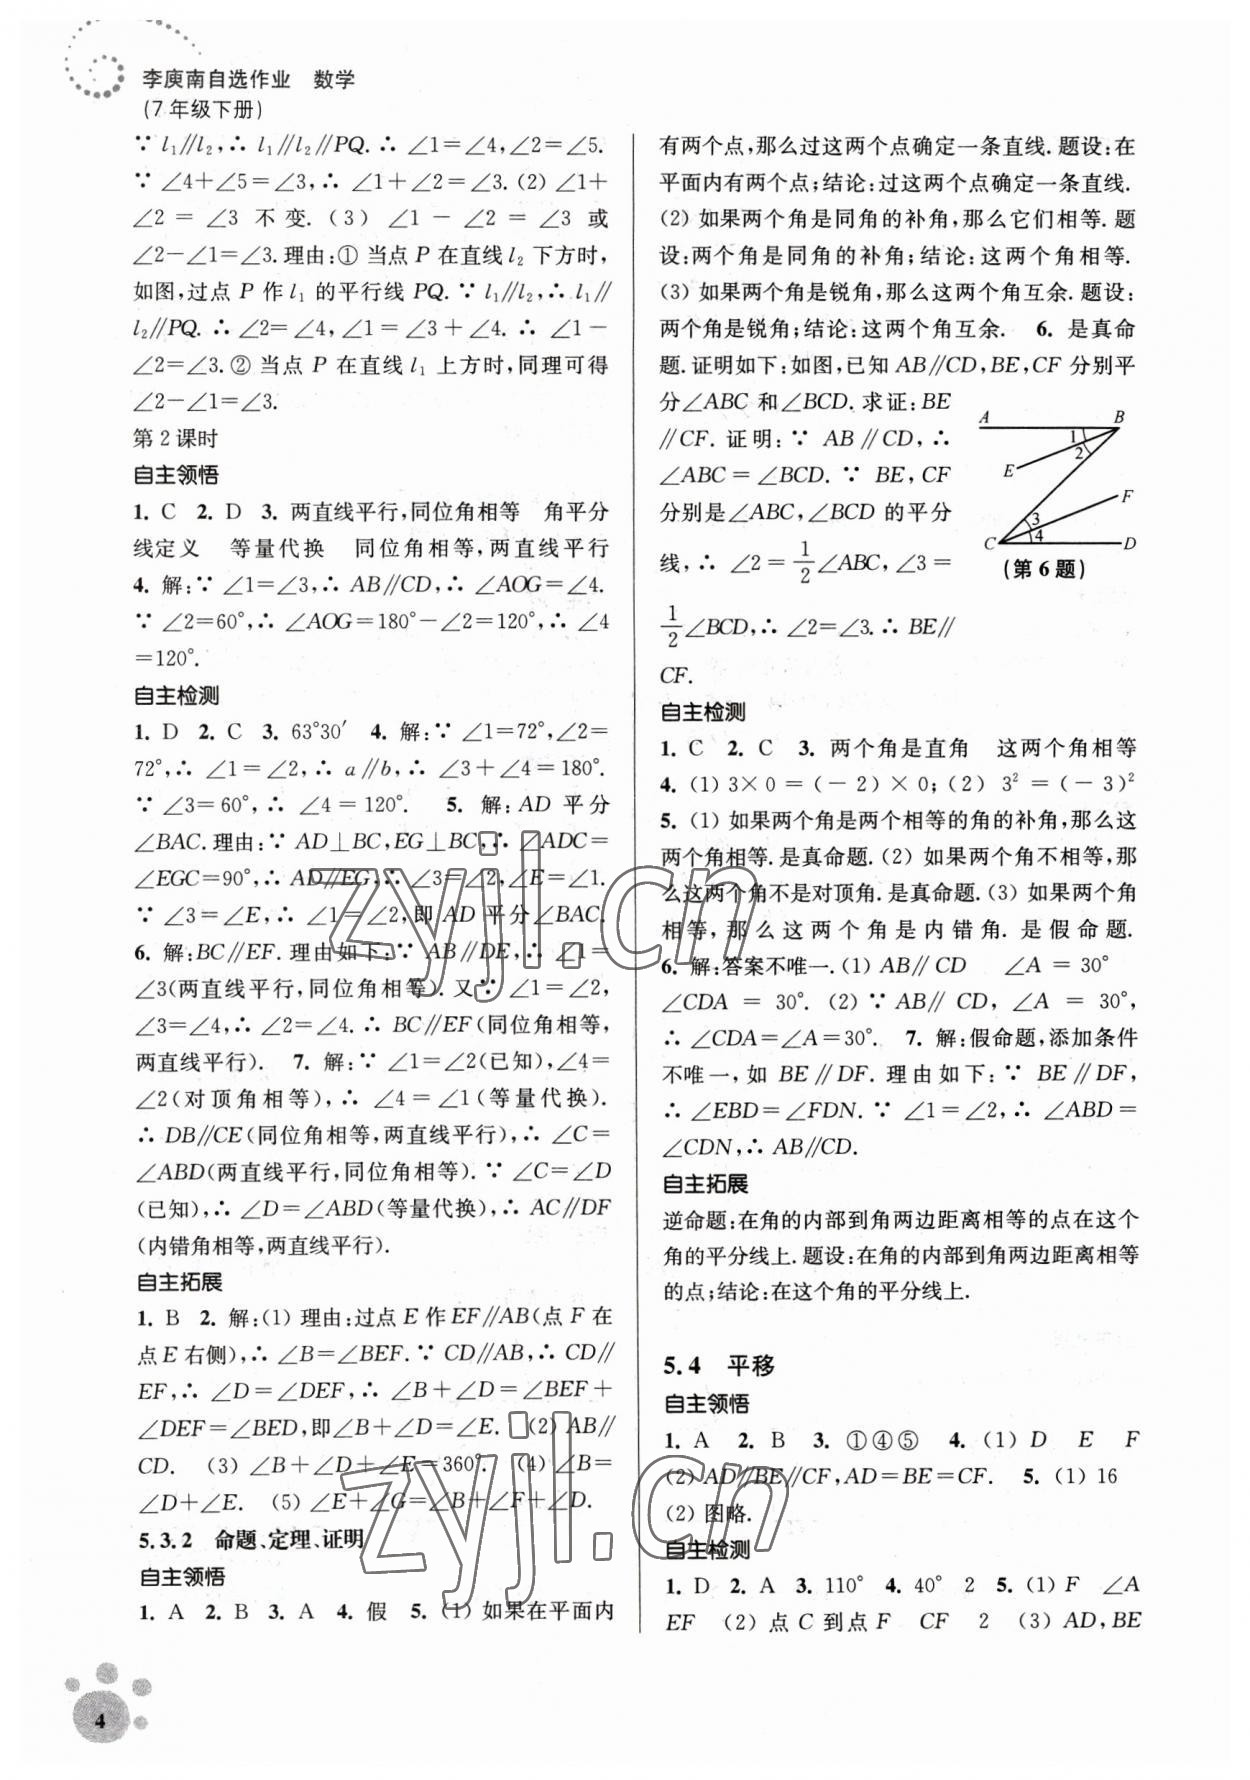 李庾南自选作业 数学
(7年级下册)
∵ l₁∥l₂,∴ l₁∥l₂∥PQ.∴ ∠1=∠4,∠2=∠5.
∵ ∠4+∠5=∠3,∴ ∠1+∠2=∠3.(2) ∠1+
∠2 = ∠3 不变.(3) ∠1-∠2=∠3 或
∠2-∠1=∠3.理由:① 当点 P 在直线 l₂ 下方时,
如图,过点 P 作 l₁ 的平行线 PQ.∵ l₁∥l₂,∴ l₁∥
l₂∥PQ.∴ ∠2=∠4,∠1=∠3+∠4.∴ ∠1-
∠2=∠3.② 当点 P 在直线 l₁ 上方时,同理可得
∠2-∠1=∠3.
第 2 课时
自主领悟
1. C 2. D 3. 两直线平行,同位角相等 角平分
线定义 等量代换 同位角相等,两直线平行
4. 解:∵ ∠1=∠3,∴ AB∥CD,∴ ∠AOG=∠4.
∵ ∠2=60°,∴ ∠AOG=180°-∠2=120°,∴ ∠4
=120°.
自主检测
1. D 2. C 3. 63°30′ 4. 解:∵ ∠1=72°,∠2=
72°,∴ ∠1=∠2,∴ a∥b,∴ ∠3+∠4=180°.
∵ ∠3=60°,∴ ∠4=120°. 5. 解:AD 平分
∠BAC.理由:∵ AD⊥BC,EG⊥BC,∴ ∠ADC=
∠EGC=90°,∴ AD∥EG,∴ ∠3=∠2,∠E=∠1.
∵ ∠3=∠E,∴ ∠1=∠2,即 AD 平分∠BAC.
6. 解:BC∥EF.理由如下:∵ AB∥DE,∴ ∠1=
∠3(两直线平行,同位角相等).又∵ ∠1=∠2,
∠3=∠4,∴ ∠2=∠4.∴ BC∥EF(同位角相等,
两直线平行). 7. 解:∵ ∠1=∠2(已知),∠4=
∠2(对顶角相等),∴ ∠4=∠1(等量代换).
∴ DB∥CE(同位角相等,两直线平行),∴ ∠C=
∠ABD(两直线平行,同位角相等).∵ ∠C=∠D
(已知),∴ ∠D=∠ABD(等量代换),∴ AC∥DF
(内错角相等,两直线平行).
自主拓展
1. B 2. 解:(1) 理由:过点 E 作EF∥AB(点 F 在
点 E 右侧),∴ ∠B=∠BEF.∵ CD∥AB,∴ CD∥
EF,∴ ∠D=∠DEF,∴ ∠B+∠D=∠BEF+
∠DEF=∠BED,即∠B+∠D=∠E. (2) AB∥
CD. (3) ∠B+∠D+∠E=360°. (4) ∠B=
∠D+∠E. (5) ∠E+∠G=∠B+∠F+∠D.
5.3.2 命题、定理、证明
自主领悟
1. A 2. B 3. A 4. 假 5. (1) 如果在平面内
有两个点,那么过这两个点确定一条直线.题设:在
平面内有两个点;结论:过这两个点确定一条直线.
(2) 如果两个角是同角的补角,那么它们相等.题
设:两个角是同角的补角;结论:这两个角相等.
(3) 如果两个角是锐角,那么这两个角互余.题设:
两个角是锐角;结论:这两个角互余. 6. 是真命
题.证明如下:如图,已知 AB∥CD,BE,CF 分别平
分∠ABC 和∠BCD.求证:BE
∥CF.证明:∵ AB∥CD,∴
∠ABC=∠BCD.∵ BE,CF
分别是∠ABC,∠BCD 的平分
线,∴ ∠2=1/2∠ABC,∠3=
1/2∠BCD,∴ ∠2=∠3.∴ BE∥
CF.
A B
1
2
E
F
3
4
C D
(第 6 题)
自主检测
1. C 2. C 3. 两个角是直角 这两个角相等
4. (1) 3×0=(-2)×0;(2) 3²=(-3)²
5. (1) 如果两个角是两个相等的角的补角,那么这
两个角相等.是真命题.(2) 如果两个角不相等,那
么这两个角不是对顶角.是真命题.(3) 如果两个角
相等,那么这两个角是内错角.是假命题.
6. 解:答案不唯一.(1) AB∥CD ∠A=30°
∠CDA=30°.(2) ∵ AB∥CD,∠A=30°,
∴ ∠CDA=∠A=30°. 7. 解:假命题,添加条件
不唯一,如 BE∥DF.理由如下:∵ BE∥DF,
∴ ∠EBD=∠FDN.∵ ∠1=∠2,∴ ∠ABD=
∠CDN,∴ AB∥CD.
自主拓展
逆命题:在角的内部到角两边距离相等的点在这个
角的平分线上.题设:在角的内部到角两边距离相等
的点;结论:在这个角的平分线上.
5.4 平移
自主领悟
1. A 2. B 3. ①④⑤ 4. (1) D E F
(2) AD∥BE∥CF,AD=BE=CF. 5. (1) 16
(2) 图略.
自主检测
1. D 2. A 3. 110° 4. 40° 2 5. (1) F ∠A
EF (2) 点 C 到点 F CF 2 (3) AD,BE
4
zyjl.cn
zyjl.cn